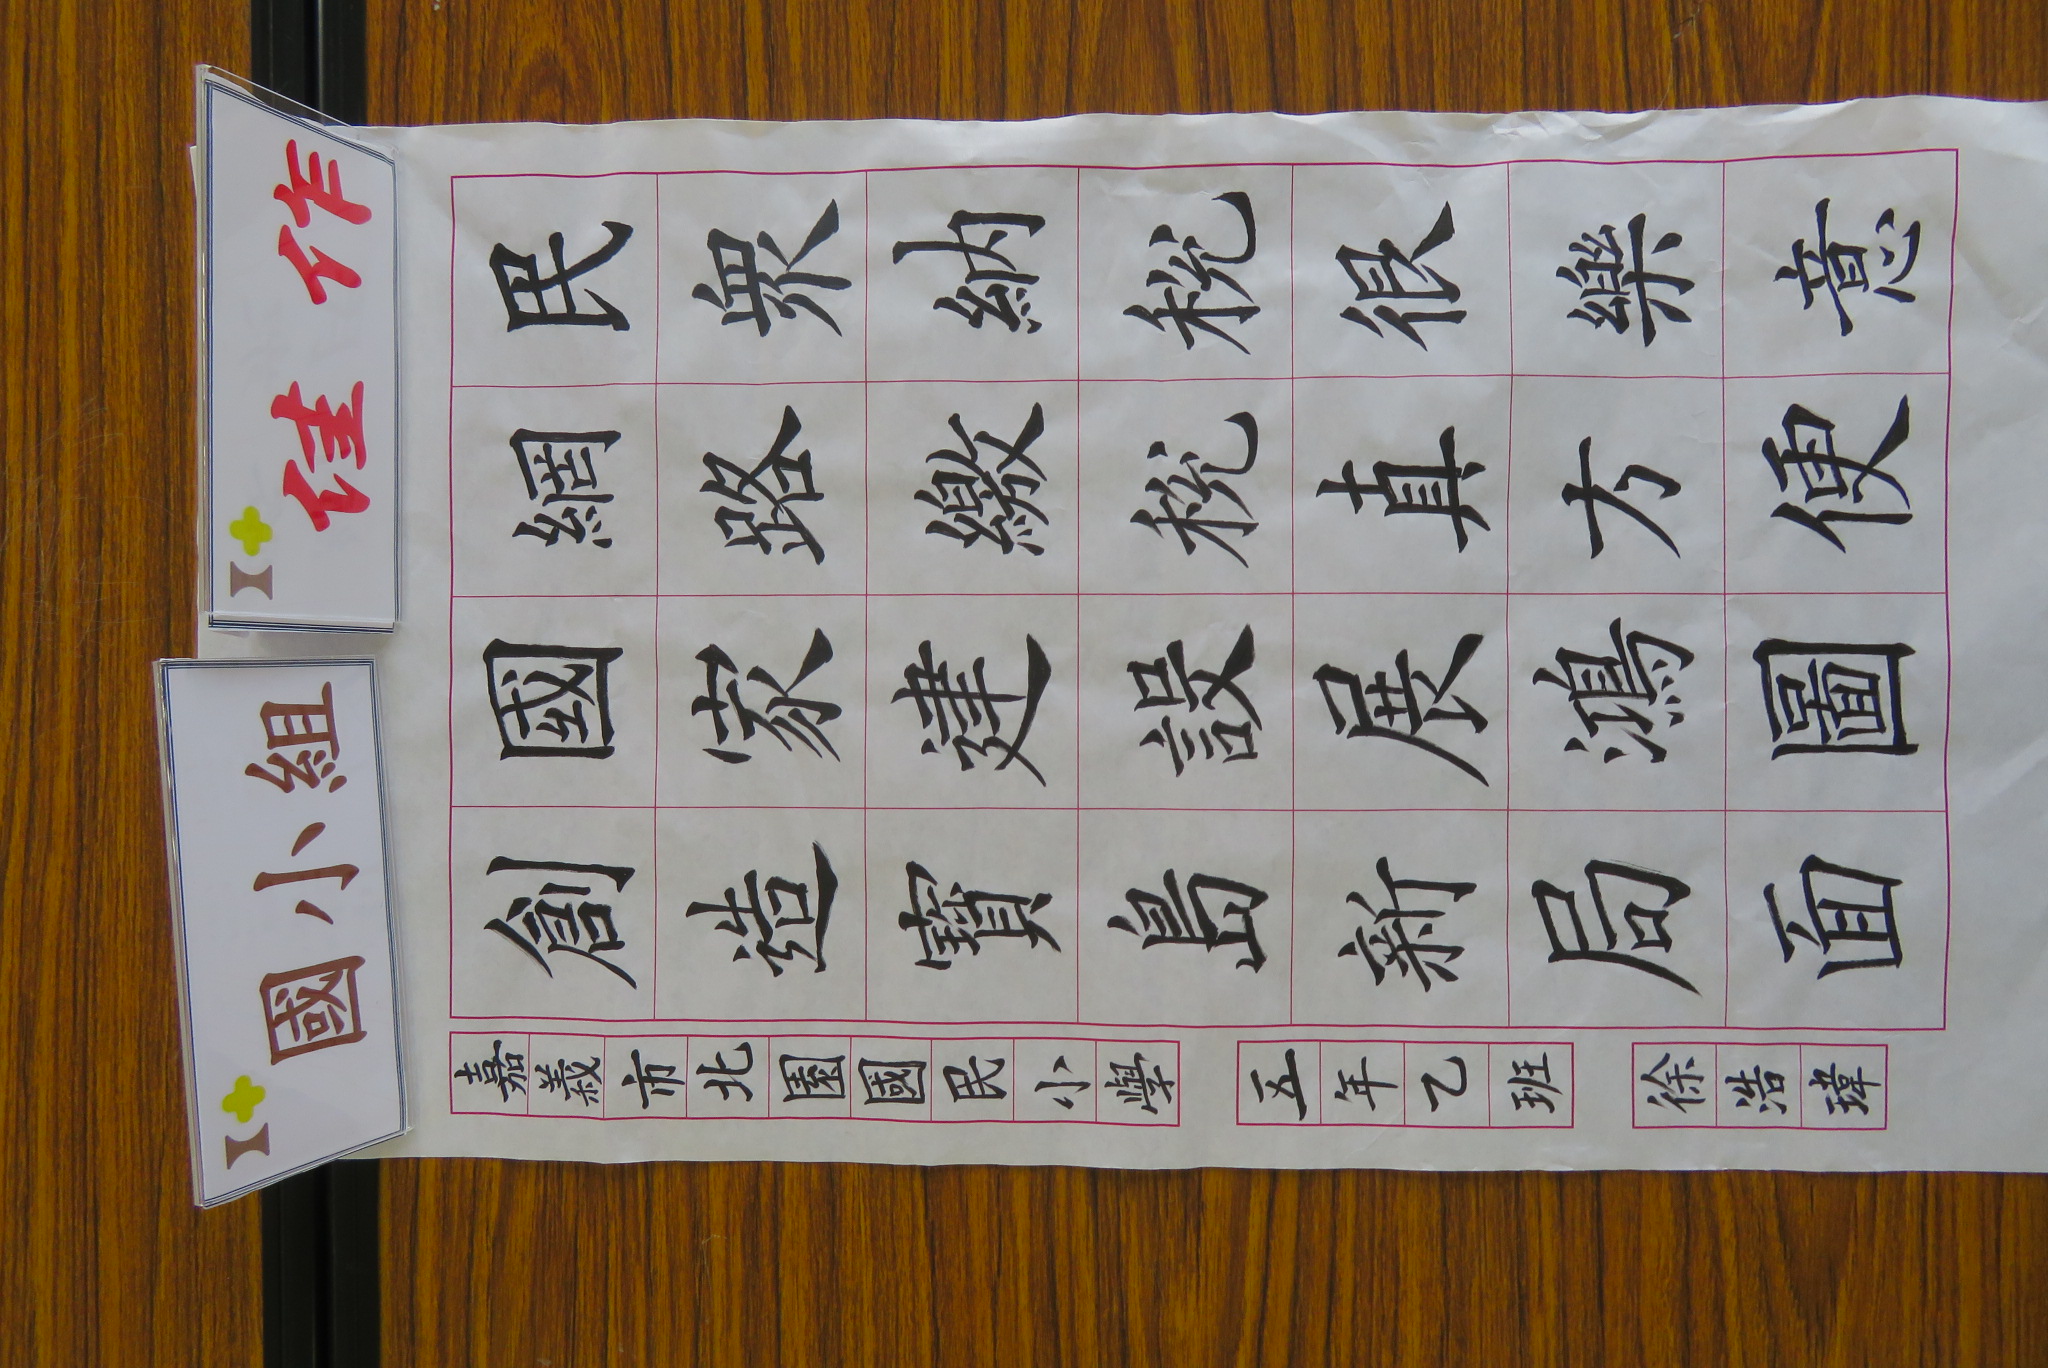 國小組
佳作
民眾納稅很樂意
網路繳稅真方便
國家建設展鴻圖
創造寶島新局面
嘉義市北園國民小學
五年乙班
徐浩瑋